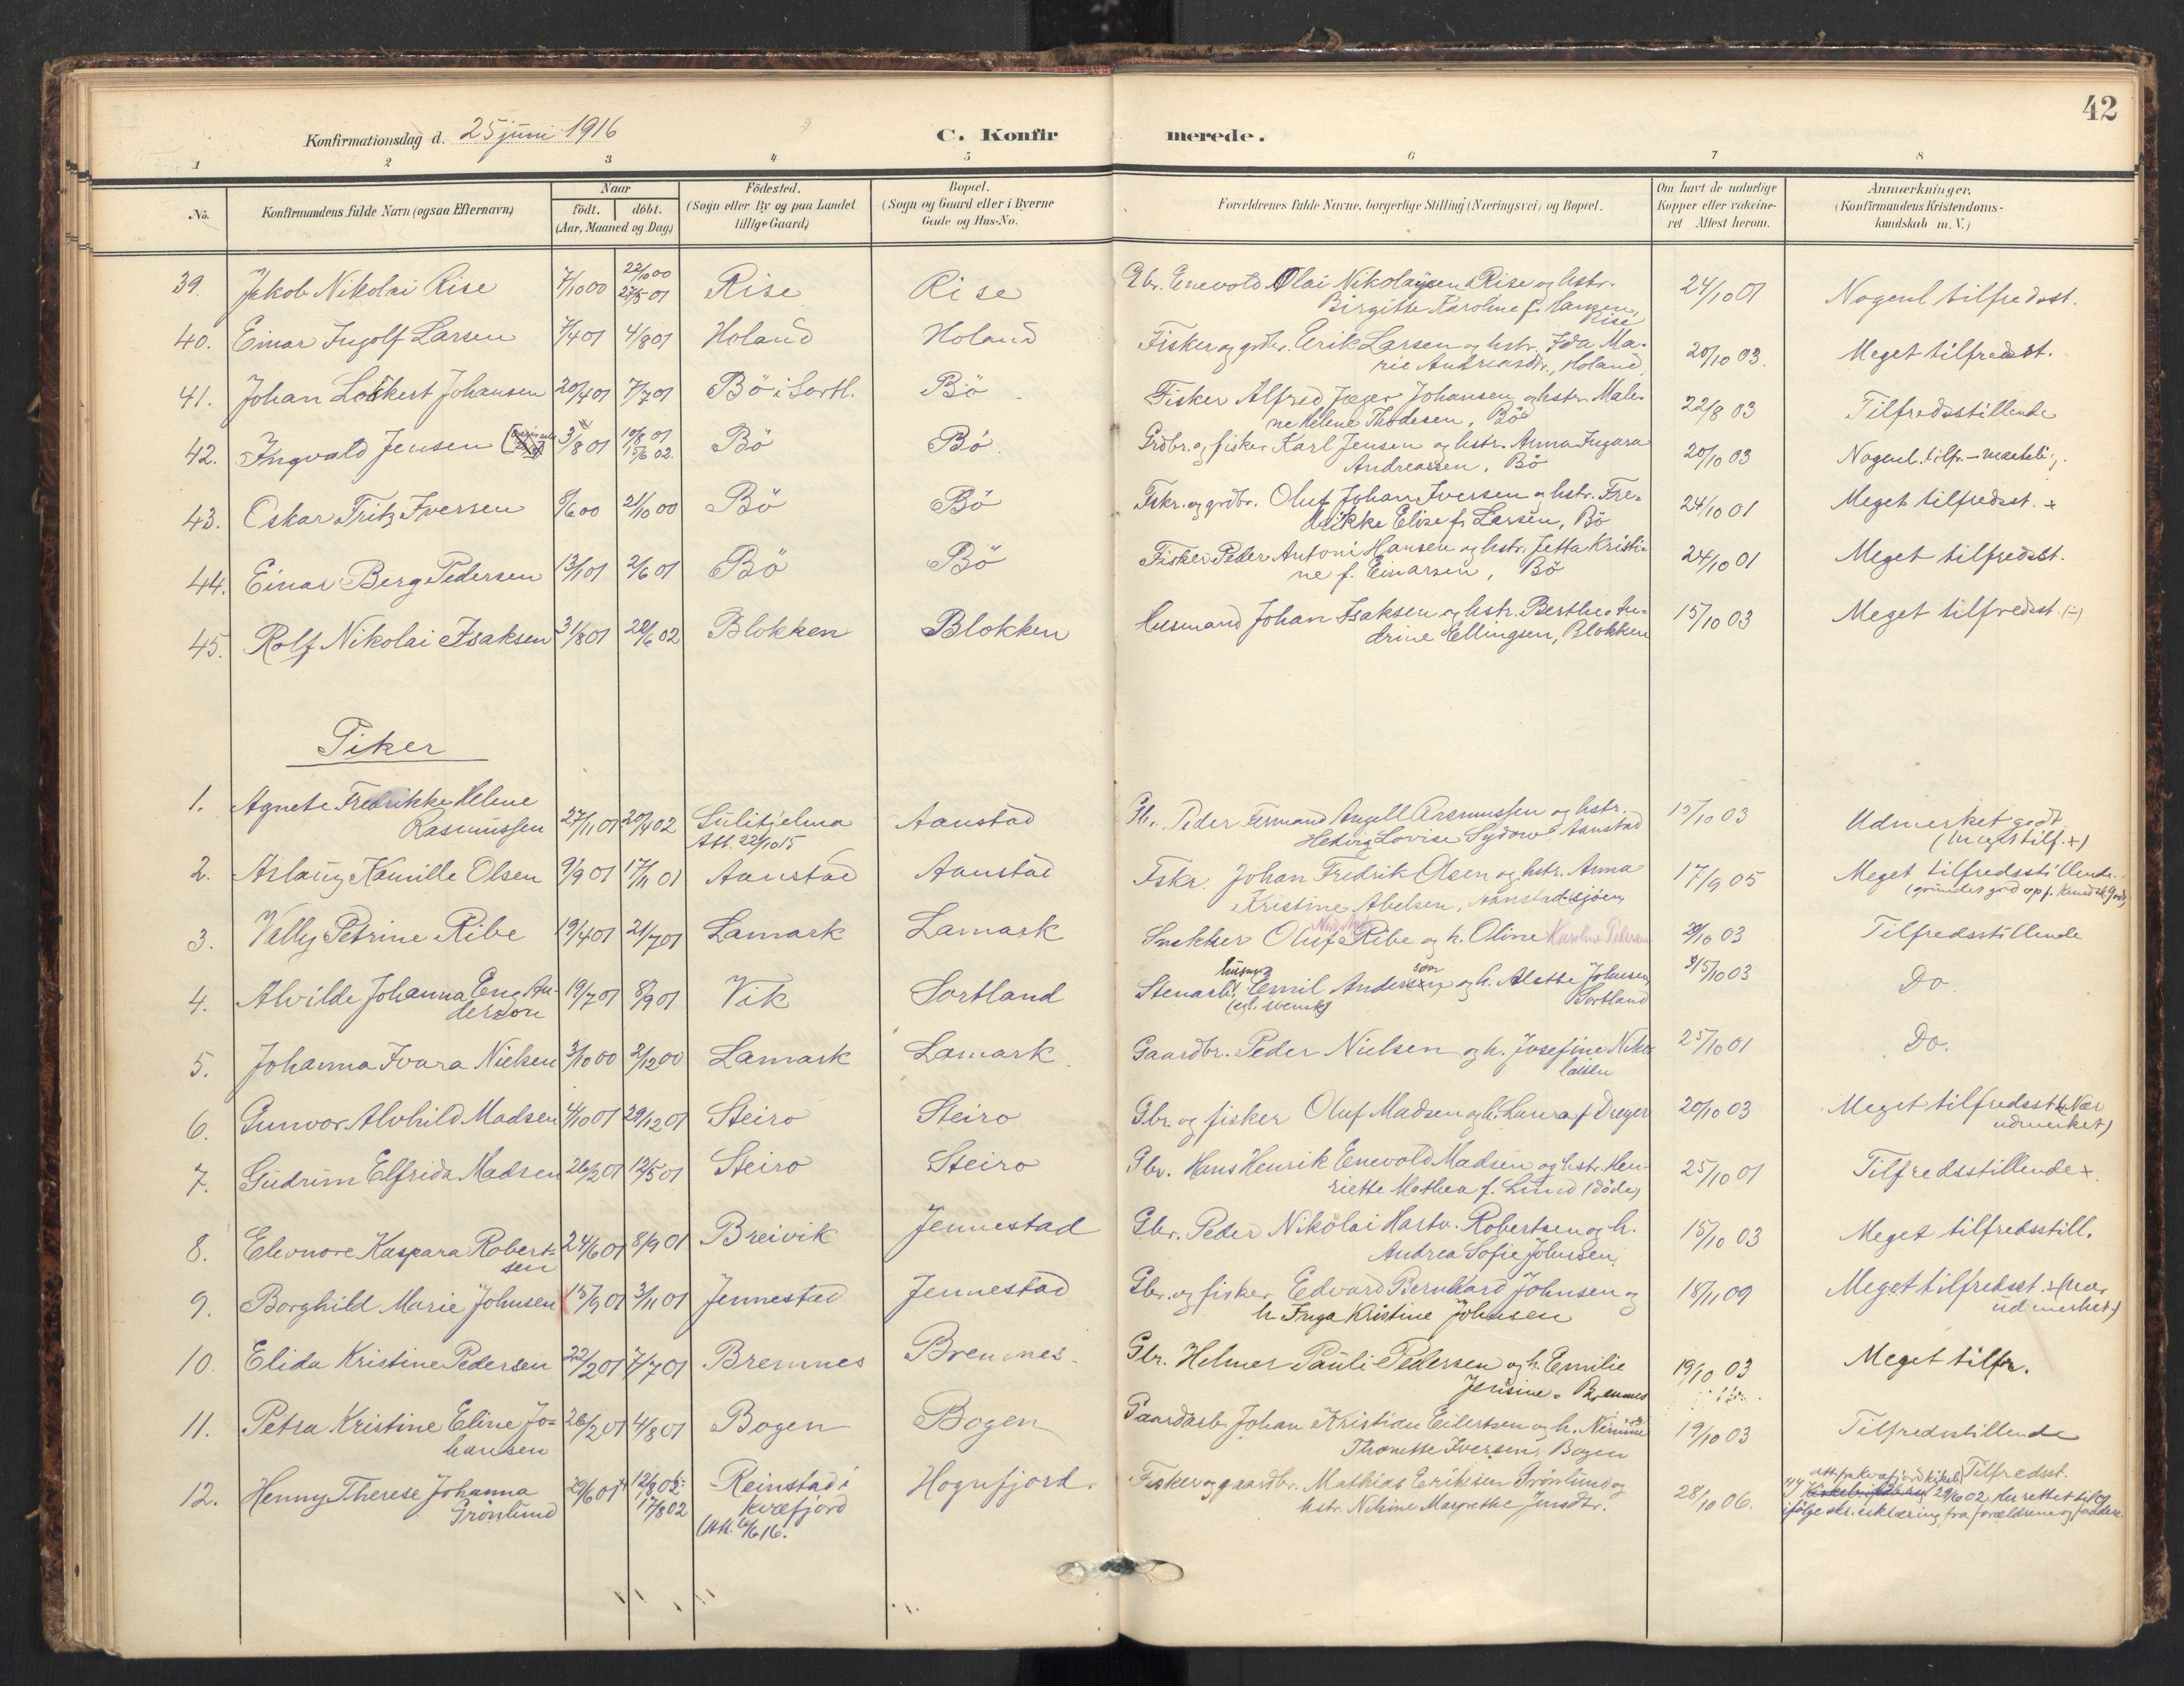 42
Konfirmationsdag d. 25 juni 1916
C. Konfirmerede.
1 2 3 4 5 6 7 8
No. Konfirmandens fulde Navn (ogsaa Efternavn) Naar födt. döbt. (Aar, Maaned og Dag.) Födested. (Sogn eller By og paa Landet tillige Gaard) Bopæl. (Sogn og Gaard eller i Byerne Gade og Hus-No. Forældrenes fulde Navne, borgerlige Stilling (Næringsvei) og Bopæl. Om havt de naturlige Kopper eller vakcineret Attest herom. Anmærkninger. (Konfirmandens Kristendomskundskab m. V.)
39. Jakob Nikolai Rise 7/10 00 22/10 00 27/5 01 Rise Rise Gbr. Enevold Olai Nikolaysen Rise og hstr. 24/10 01 Nogenl tilfredsst.
Birgitte Karoline f. Hansen, Rise
40. Einar Ingolf Larsen 7/4 01 4/8 01 Holand Holand Fisker og grdbr. Erik Larsen og hstr. Ida Ma- 20/10 03. Meget tilfredsst.
rie Andreasdtr., Holand
41. Johan Lockert Johansen 20/4 01 7/7 01 Bö i Sortl. Bö Fisker Alfred Jæger Johansen og hstr. Male- 22/8 03 Tilfredsstillende
ne Helene Thodesen, Bö
42. Ingvald Jensen 3/8 01 10/8 01 15/6 02. Bö Bö. Grdbr. og fisker Karl Jensen og hstr. Anna Ingara 20/10 03 Nogenl. tilfr.
Andreassen, Bö
43. Oskar Fritz Iversen 9/6 00 21/10 00 Bö Bö Fskr. og grdbr. Oluf Johan Iversen og hstr. Fre- 24/10 01 Meget tilfredsst. +
drikke Elise f. Larsen, Bö
44. Einar Berg Pedersen 13/1 01 2/6 01 Bö Bö Fisker Peder Antoni Hansen og hstr. Jetta Kristi- 24/10 01 Meget tilfredsst.
ne f. Einarsen, Bö
45. Rolf Nikolai Isaksen 31/8 01 22/6 02 Blokken Blokken Husmand Johan Isaksen og hstr. Berthe An- 15/10 03 Meget tilfredsst (-)
drine Ellingsen, Blokken
Piker
1. Agnete Fredrikke Helene
Rasmussen 27/11 01 20/4 02 Sulitjelma Aanstad Gbr. Peder Fermand Angell Rasmussen og hstr. 15/10 03 Udmerket godt
Att. 22/10 15 Hedvig Lovise Sydow Aanstad (Meget tilf. +)
2. Aslaug Kamille Olsen 9/9 01 17/11 01 Aanstad Aanstad Fskr. Johan Fredrik Olsen og hstr. Anna 17/9 05 Meget tilfredsstillende.
Kristine Abelsen, Aanstadsjøen
3. Vally Petrine Ribe 19/4 01 21/7 01 Lamark Lamark Snekker Oluf Ribe og h. Oline Karoline Pedersen 20/10 03 Tilfredsstillende
4. Alvilde Johanna Eng An- 19/7 01 8/9 01 Vik Sortland Stenarb. husm. Emil Anderson og h. Alette Johnsen, 15/10 03 Do.
derson (egl. svensk) Sortland
5. Johanna Ivara Nielsen 3/10 00 2/12 00 Lamark Lamark. Gaardbr. Peder Nielsen og h. Josefine Niko- 25/10 01 Do.
laisen
6. Gunvor Alvhild Madsen 4/10 01 29/12 01 Steiro Steiro Gbr. og fisker Oluf Madsen og h. Laura f Dreyer 20/10 03 Meget tilfredsst (Nær
udmerket)
7. Gudrun Elfrida Madsen 26/2 01 12/5 01 Steiro Steiro Gbr. Hans Henrik Enevold Madsen og hstr. Hen- 25/10 01 Tilfredsstillende +.
riette Mathea f. Lund (døde)
8. Eleonore Kaspara Robert- 24/6 01 8/9 01 Breivik Jennestad Gbr. Peder Nikolai Hartv. Robertsen og h. 15/10 03 Meget tilfredsstill.
sen Andrea Sofie Johnsen.
9. Borghild Marie Johnsen 15/9 01 3/11 01 Jennestad Jennestad Gbr. og fisker Edvard Bernhard Johnsen og 18/11 09 Meget tilfredsst. + (Nær
h. Inga Kristine Johnsen udmerket)
10. Elida Kristine Pedersen 22/2 01 7/7 01 Bremnes Bremnes. Gbr. Helmer Pauli Pedersen og h. Emilie 19/10 03 Meget tilfr.
Jensine. Bremnes
11. Petra Kristine Eline Jo- 26/2 01 4/8 01 Bogen Bogen Gaardarb. Johan Kristian Eilertsen og h. 19/10 03 Tilfredsstillende
hansen Thonette Iversen, Bogen
12. Henny Therese Johanna 29/6 01 12/8 02 17/8 02 Reinstad i Hognfjord. Fisker og gaardbr. Mathias Eriksen Grönlund og 28/10 06. Tilfredsst.
Grönlund kvæfjord hstr. Nikine Margrethe Jensdtr. att. fra Kvæfjord kirkeb. 29/6 02, her rettet til 01
(Att. 6/6 16. ifölge skr. erklæring fra forældrene og faddere.